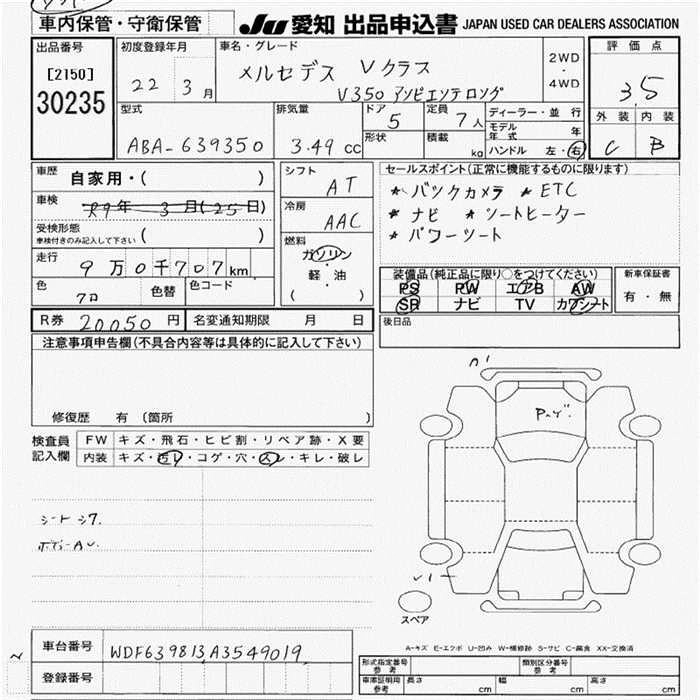 車内保管・守衛保管
JU 愛知 出品申込書 JAPAN USED CAR DEALERS ASSOCIATION
出品番号 初度登録年月 車名・グレード 評価点
[2150] 22 3月 メルセデス Vクラス 2WD・4WD 3.5
30235 V350 アンビエンテロング
型式 排気量 ドア 定員 ディーラー・並行 外装 内装
5 7人 モデル年式 年
ABA-639350 3.49cc 形状 積載 kg ハンドル 左・右 C B
車歴 自家用・( ) シフト AT セールスポイント(正常に機能するものに限ります)
車検 R9年 3月(25日) * バックカメラ * ETC
冷房 AAC * ナビ * シートヒーター
受検形態 車検付きのみ記入して下さい ( ) * パワーシート
走行 9万0千707km 燃料 ガソリン・軽・油 ( )
装備品(純正品に限り○をつけてください) 新車保証書
色 クロ 色替 色コード PS PW エアB AW 有・無
SR ナビ TV カワシート
R券 20050円 名変通知期限 月 日 後日品
注意事項申告欄(不具合内容等は具体的に記入して下さい)
修復歴 有 (箇所 )
検査員記入欄 FW キズ・飛石・ヒビ割・リペア跡・X要
内装 キズ・汚レ・コゲ・穴・スレ・キレ・破レ
シートシワ.
ボディAU.
スペア
A-キズ E-エクボ U-凹み W-補修跡 S-サビ C-腐食 XX-交換済
車台番号 WDF639813A3549019
登録番号
型式指定番号 参考 類別区分番号 参考
車庫証明用 参考 長さ cm 幅 cm 高さ cm